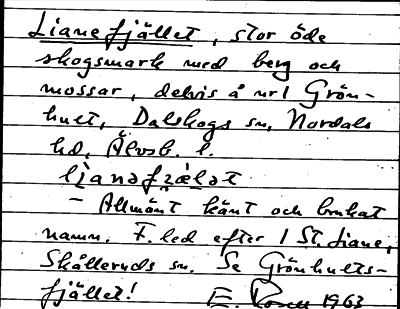 Lianefjället, stor öde
skogsmark med berg och
mossar, delvis å nr 1 Grön-
hult, Dalskogs sn, Nordals
hd, Älvsb. l.
ljanəfjæl̥ət
- Allmänt känt och brukat
namn. F. led efter 1 St. Liane,
Skålleruds sn. Se Grönhults-
fjället! E. 1963